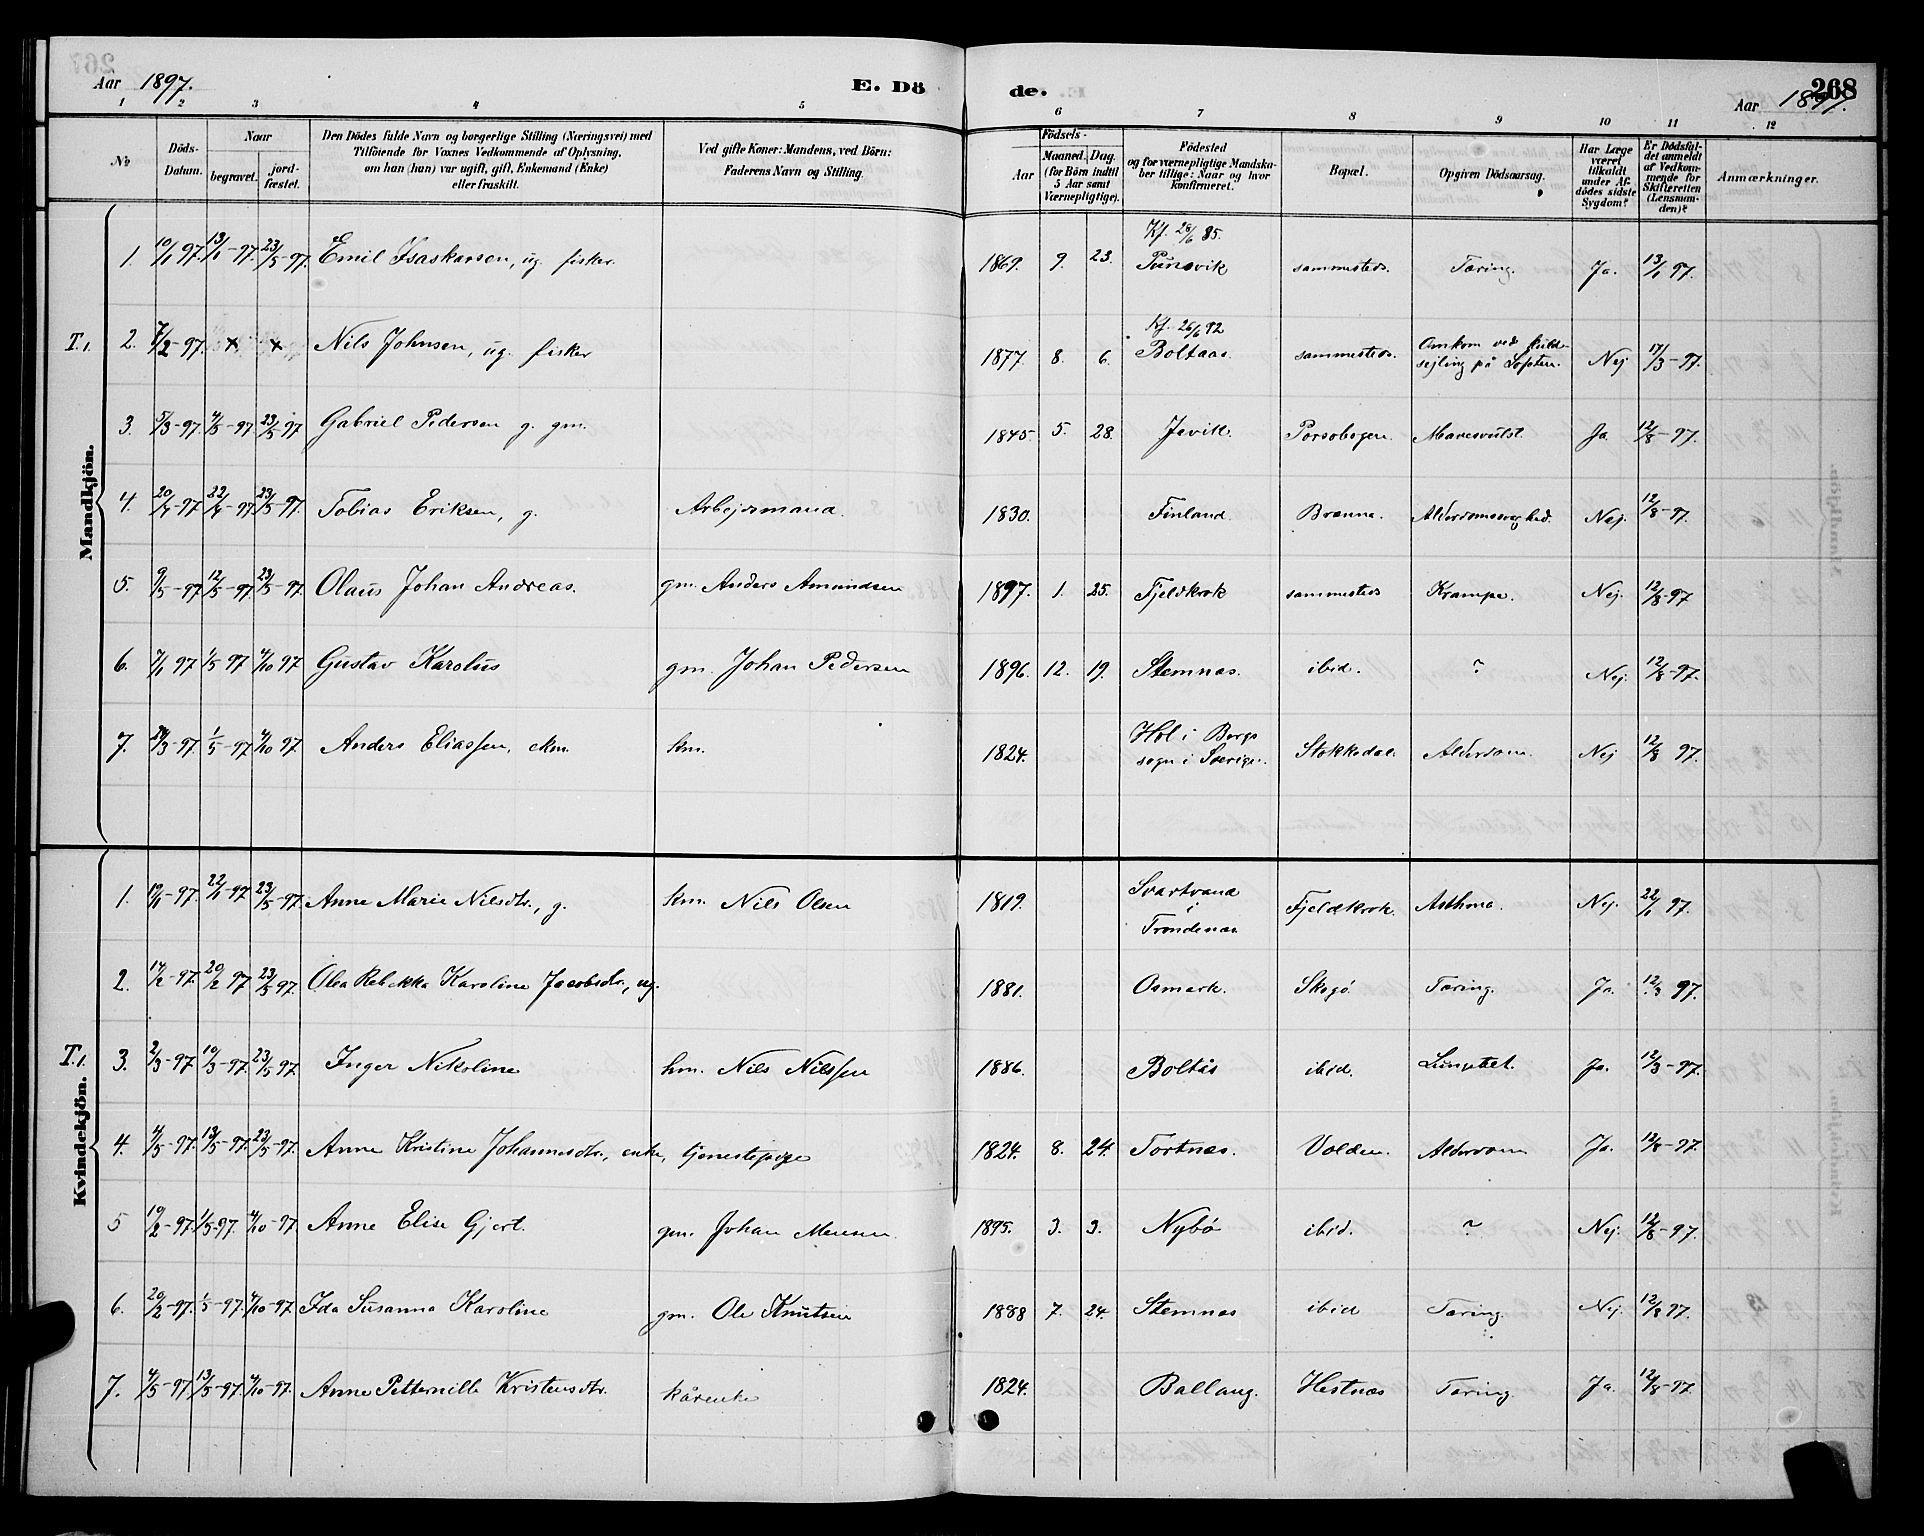 Aar 1897.
E. Dö
de.
268
Aar 1897.
1 2 3 4 5 6 7 8 9 10 11 12
No
Döds-Datum.
Naar
begravet.
jord-fæstet.
Den Dödes fulde Navn og borgerlige Stilling (Næringsvei) med
Tilföiende for Voxnes Vedkommende af Oplysning,
om han (hun) var ugift, gift, Enkemand (Enke)
eller fraskilt.
Ved gifte Koner: Mandens, ved Börn:
Faderens Navn og Stilling.
Födsels-
Aar
Maaned. Dag.
(for Börn indtil
5 Aar samt
Værnepligtige).
Födested
og for værnepligtige Mandska-
ber tillige: Naar og hvor
konfirmeret.
Bopæl.
Opgiven Dödsaarsag.
Har Læge
været
tilkaldt
under Af-
dödes sidste
Sygdom?
Er Dödsfal-
det anmeldt
af Vedkom-
mende for
Skifteretten
(Lensman-
den)?
Anmærkninger.
Mandkjön.
1. 10/1 97. 13/1-97. 23/5-97. Emil Isaskarsen, ug. fisker. 1869. 9. 23. Kf. 26/6 85. sammesteds. Tæring. Ja. 13/1 97.
T. 2. 7/2-97. x x Nils Johnsen, ug. fisker 1877. 8. 6. Kf. 26/6 92 Boltaas. sammesteds. Omkom ved sejling på Nej 17/3-97.
3. 5/3-97. 4/5-97. 23/5-97 Gabriel Pedersen g. gm. 1845 5. 28. Jevik. Ja. 12/8-97.
4. 20/4-97 22/4-97. 23/5-97. Tobias Eriksen, g. Arbejdsmand. 1830. Finland. Brænne. Alderdomssvaghed. Nej. 12/8-97.
5. 9/5-97 12/5-97. 23/5-97. Olaus Johan Andreas. gm. Anders Amundsen 1897. 1. 25. Fjeldkrok sammesteds Krampe. Nej. 12/8-97
6. 7/1 97 1/5 97 4/10 97 Gustav Karolus gm. Johan Pedersen 1896. 12. 19. Stemnæs. ibid. ? Nej. 12/8-97.
7. 1/5-97 4/10 97. Anders Eliassen, ekm. km. 1824. Hol i Bergs sogn i Sverige. Stokkedal. Alderdom. Nej 12/8 97.
Kvindekjön.
1. 19/1-97. 22/1-97 23/5-97. Anne Marie Nilsdtr., g. km. Nils Olsen 1819. Svartvand i Trondenæs Fjeldkrok. Asthma. Nej. 22/1 97.
2. 14/2-97. 20/2 97 23/5 97. Olea Rebekka Karoline Jacobsdtr., ug. 1881. Osmark. Skogö. Tæring. Ja. 12/3 97.
T. 3. 2/3-97 10/3-97. 23/5 97. Inger Nikoline hm. Nils Nilssen 1886. Boltås ibid. Ja. 12/3-97.
4. 4/5-97. 13/5-97. 23/5-97. Anne Kristine Johannesdtr., enke, tjenestepige 1824. 8. 24. Tortnæs. Volden. Alderdom Ja. 12/8-97.
5 19/2-97. 1/5-97. 4/10-97. Anne Elise Gjert. gm. Johan Monsen 1895. 3. 3. Nybö ibid. ? Nej. 12/8-97.
6. 20/2-97. 1/5-97. 4/10-97. Ida Susanna Karoline gm. Ole Knutsen 1888 7. 24. Stemnæs ibid Tæring. Nej. 12/8 97.
7. 4/5-97 13/5-97. 4/10-97. Anne Petternille Kristensdtr. kårenke 1824. Ballang. Hestnæs Tæring. Ja. 12/8-97